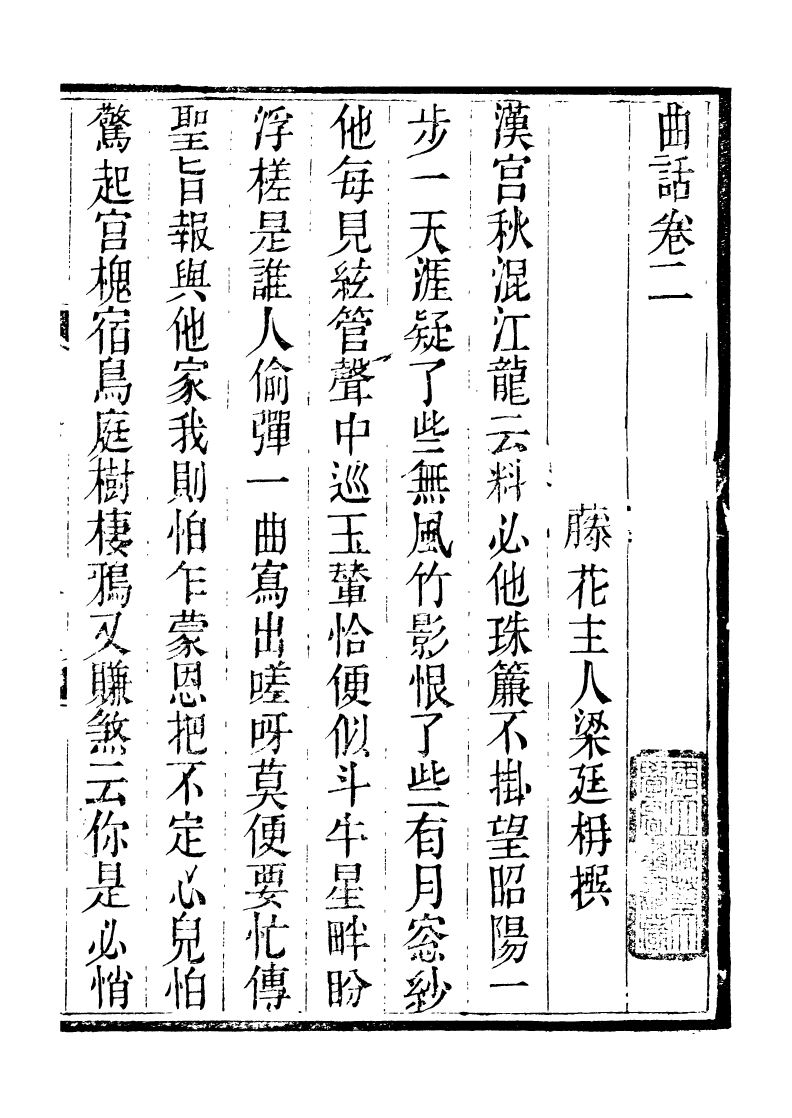 曲話卷二
藤花主人梁廷枏撰
漢宫秋混江龍云料必他珠簾不掛望昭陽一
步一天涯疑了些無風竹影恨了些有月窓紗
他每見絃管聲中巡玉輦恰便似斗牛星畔盼
浮槎是誰人偷彈一曲寫出嗟呀莫便要忙傳
聖旨報與他家我則怕乍蒙恩把不定心兒怕
驚起宫槐宿鳥庭樹棲鴉又賺煞云你是必悄